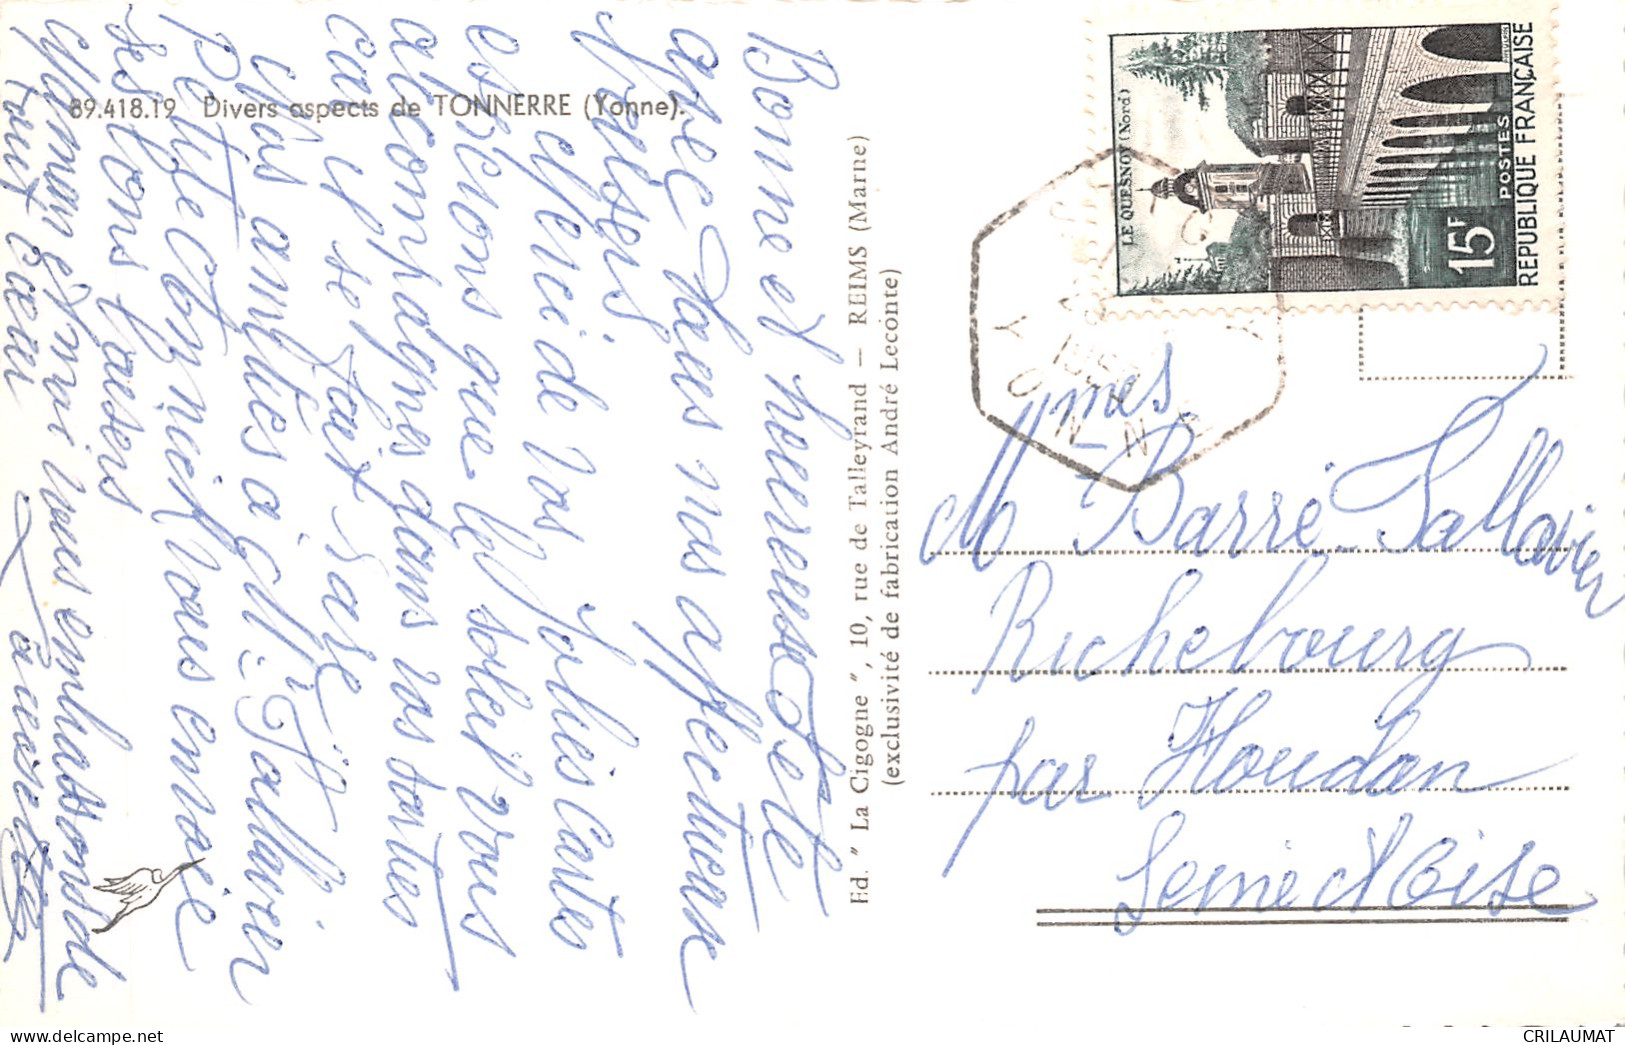 89.418.19 Divers aspects de TONNERRE (Yonne).
Bonne et heureuse Fête
avec tous nos affectueux
baisers.
Merci de vos jolies cartes
espérons que le soleil vous
accompagnes dans vos sorties
car il se fait rare
Mes amitiés à M. Tallavier
Petite Cognict vous envoie
ses bons baisers
Maman et moi vous embrassons de
tout cœur
Ed. " La Cigogne ", 10, rue de Talleyrand — REIMS (Marne)
(exclusivité de fabrication André Leconte)
LE QUESNOY (Nord)
15F
POSTES
REPUBLIQUE FRANÇAISE
YONNE
Mmes Barré-Tallavier
Richebourg
par Houdan
Seine et Oise
CRILAUMAT